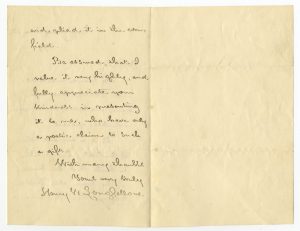 and, afraid, it in the corn
field.
Be assured that I
value it very highly, and
fully appreciate your
kindness in presenting
it to me, who have only
a poetic claim to such
a gift.
With many thanks
Yours very truly
Henry W. Longfellow.